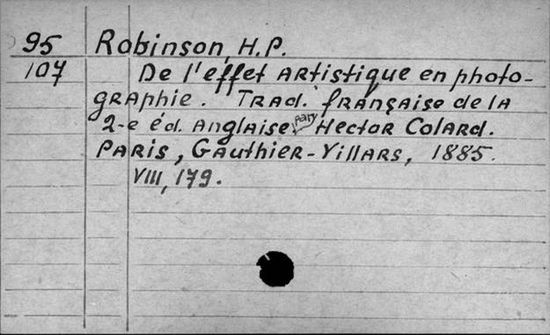 95 Robinson, H.P.
107 De l'effet artistique en photo-
graphie. Trad. française de la
2-e éd. anglaise par Hector Colard.
Paris, Gauthier-Villars, 1885.
VIII, 179.